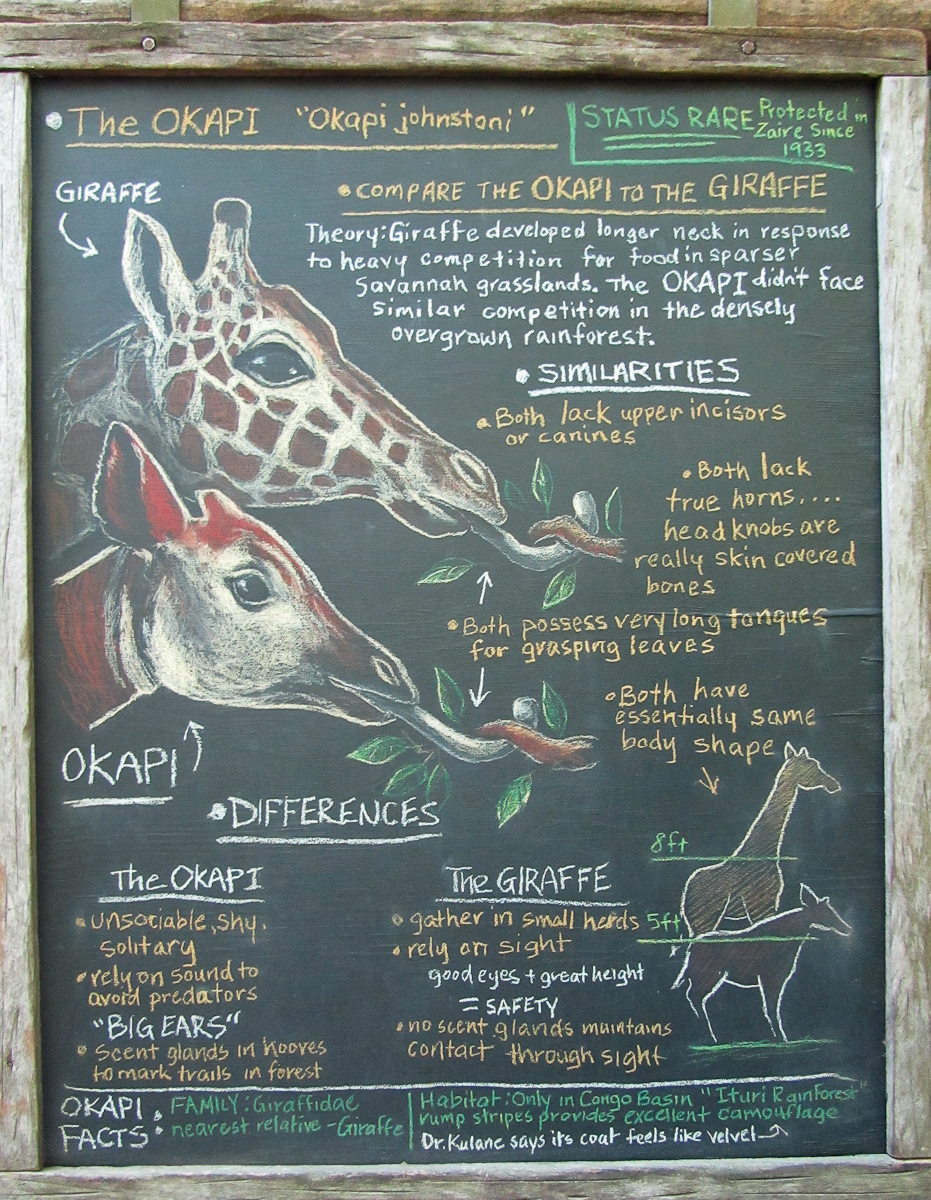 The OKAPI "Okapi johnstoni"
STATUS RARE Protected in
Zaire Since
1933
GIRAFFE
COMPARE THE OKAPI TO THE GIRAFFE
Theory: Giraffe developed longer neck in response
to heavy competition for food in sparser
Savannah grasslands. The OKAPI didn't face
similar competition in the densely
overgrown rainforest.
SIMILARITIES
Both lack upper incisors
or canines
Both lack
true horns....
head knobs are
really skin covered
bones
Both possess very long tongues
for grasping leaves
Both have
essentially same
body shape
OKAPI
8ft
5ft
DIFFERENCES
The OKAPI
unsociable, shy,
solitary
rely on sound to
avoid predators
"BIG EARS"
Scent glands in hooves
to mark trails in forest
The GIRAFFE
gather in small herds
rely on sight
good eyes + great height
= SAFETY
no scent glands maintains
contact through sight
OKAPI
FACTS:
FAMILY: Giraffidae
nearest relative - Giraffe
Habitat: Only in Congo Basin "Ituri RainForest"
rump stripes provides excellent camouflage
Dr. Kulane says its coat feels like velvet